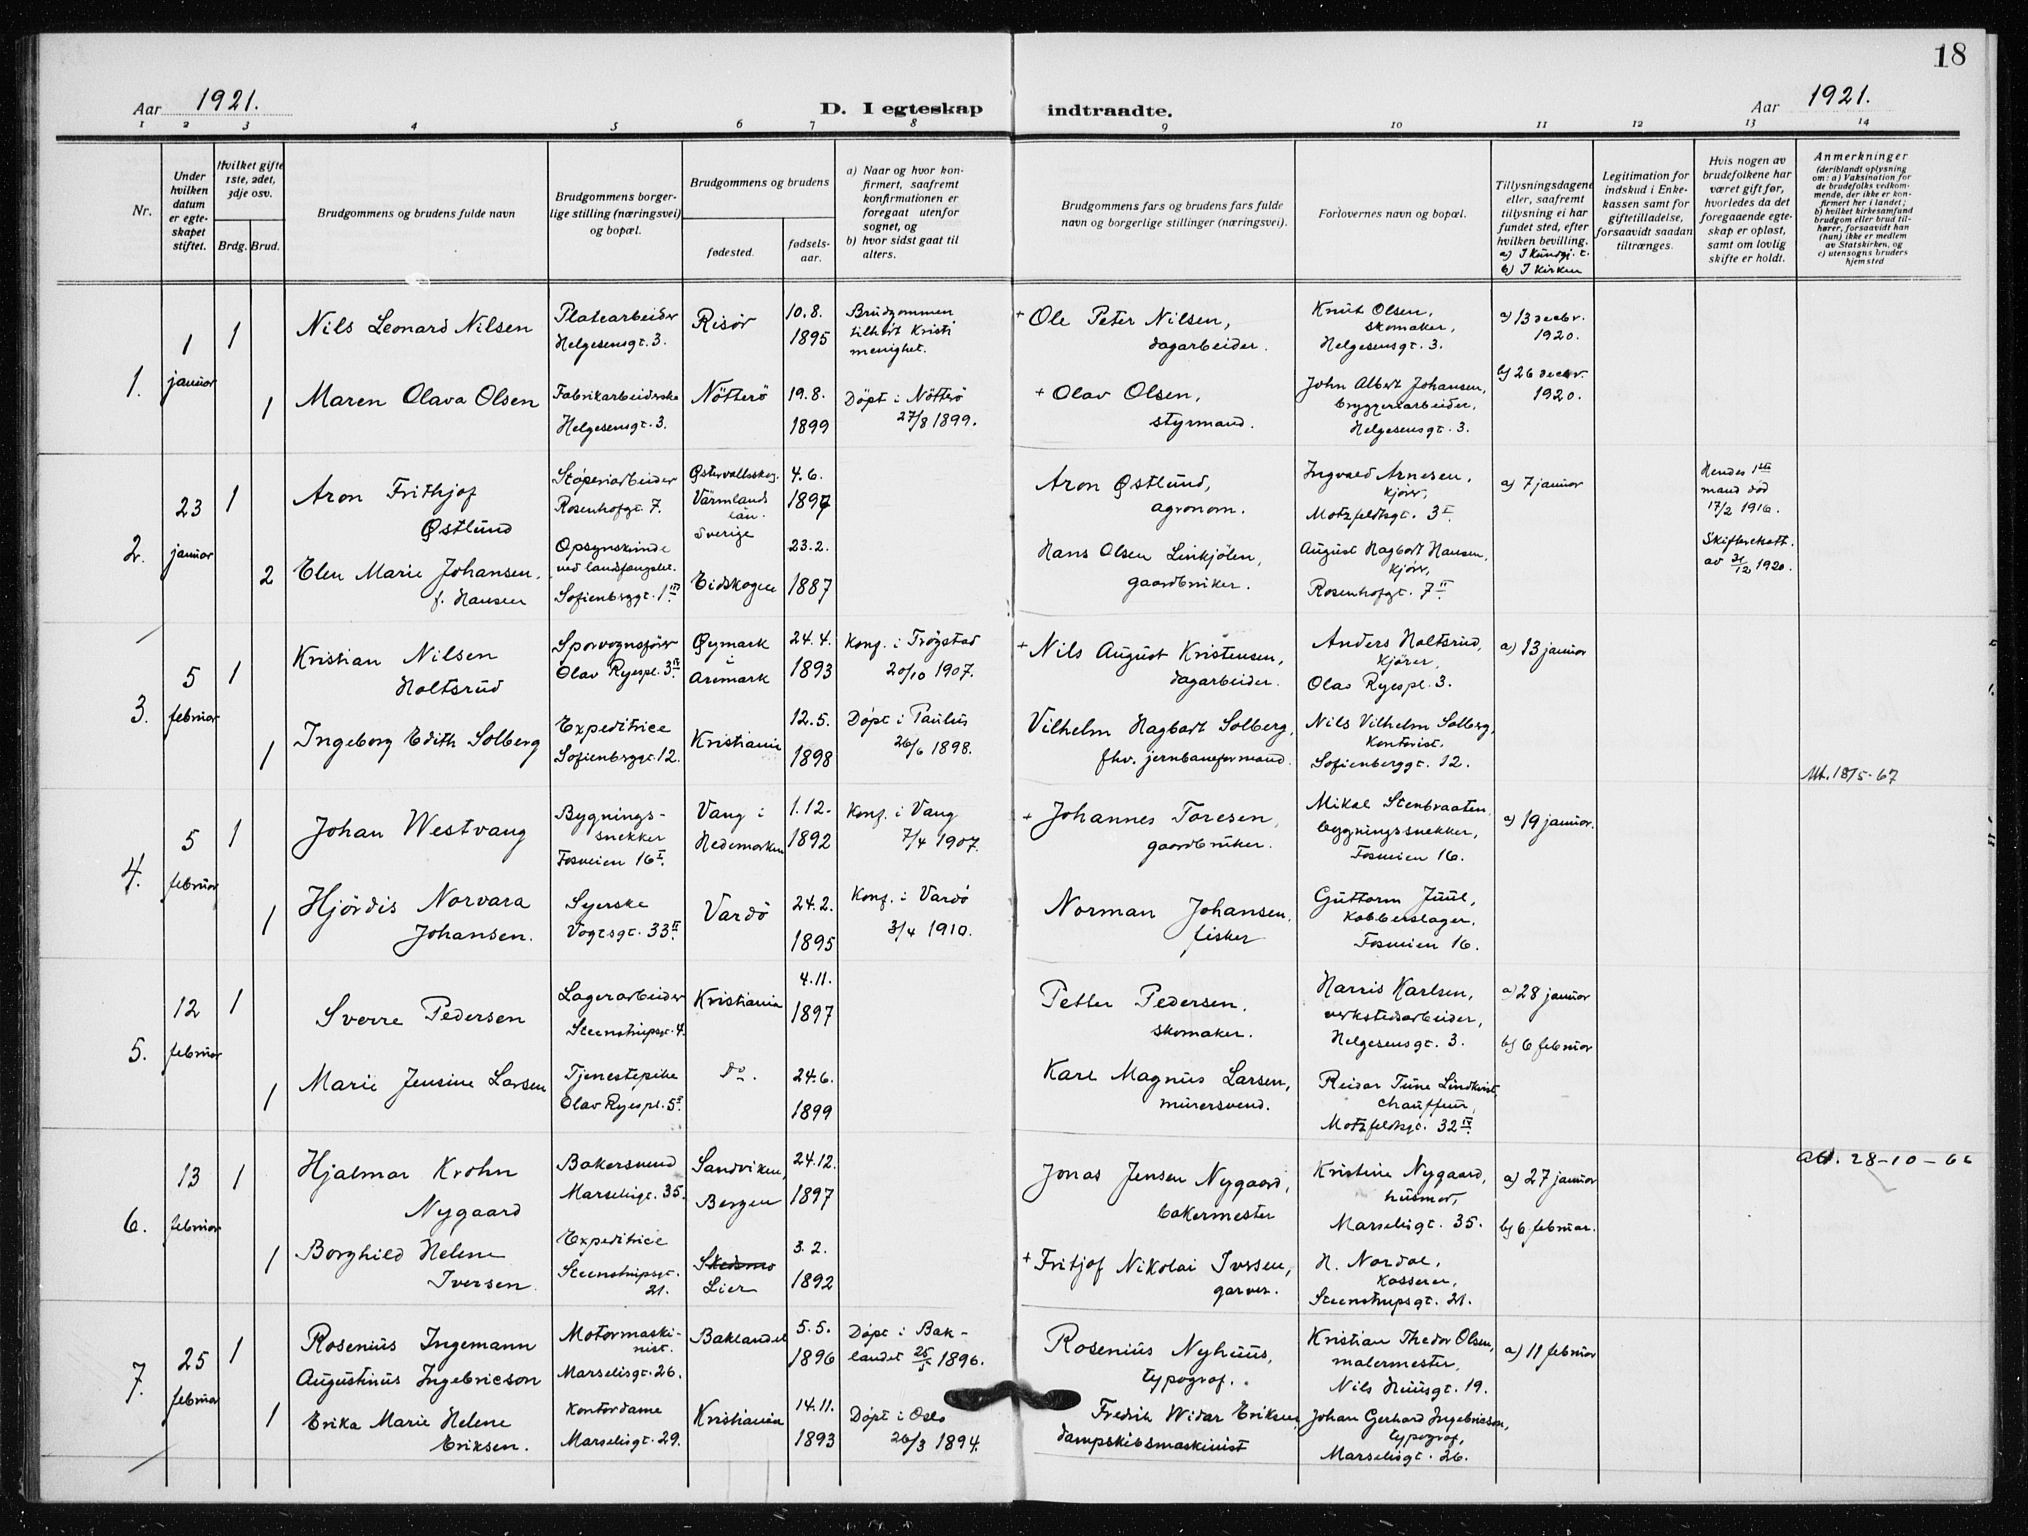 18
Aar 1921.
D. I egteskap indtraadte.
Aar 1921.
1 2 3 4 5 6 7 8 9 10 11 12 13 14
Nr.
Under
hvilken
datum
er egte-
skapet
stiftet.
Hvilket gifte
1ste, 2det,
3dje osv.
Brdg. Brud.
Brudgommens og brudens fulde navn
Brudgommens borger-
lige stilling (næringsvei)
og bopæl.
Brudgommens og brudens
fødested.
fødsels-
aar.
a) Naar og hvor kon-
firmert, saafremt
konfirmationen er
foregaat utenfor
sognet, og
b) hvor sidst gaat til
alters.
Brudgommens fars og brudens fars fulde
navn og borgerlige stillinger (næringsvei).
Forlovernes navn og bopæl.
Tillysningsdagene
eller, saafremt
tillysning ei har
fundet sted, efter
hvilken bevilling.
a) I Kundgj. t.
b) I kirken
Legitimation for
indskud i Enke-
kassen samt for
giftetilladelse,
forsaavidt saadan
tiltrænges.
Hvis nogen av
brudefolkene har
været gift før,
hvorledes da det
foregaaende egte-
skap er opløst,
samt om lovlig
skifte er holdt.
Anmerkninger
(deriblandt oplysning
om: a) Vaksination for
de brudefolks vedkom-
mende, der ikke er kon-
firmert her i landet;
b) hvilket kirkesamfund
brudgom eller brud til-
hører, forsaavidt han
(hun) ikke er medlem
av Statskirken, og
c) utensogns bruders
hjemsted
1.
1
januar
1
Nils Leonard Nilsen
Platearbeider
Helgesensgt. 3.
Risør
10.8.
1895
Brudgommen
tilhør Kristi
menighet.
+ Ole Peter Nilsen,
dagarbeider.
Knut Olsen,
skomaker,
Helgesensgt. 3.
a) 13 decbr.
1920.
1
Maren Olava Olsen
Fabrikarbeiderske
Helgesensgt. 3.
Nötterö
19.8.
1899
Döpt i Nötterö
27/8 1899.
+ Olav Olsen,
styrmand.
John Albert Johansen,
bryggeriarbeider,
Helgesensgt. 3.
b) 26 decbr.
1920.
2.
23
januar
1
Aron Frithjof
Østlund
Støperiarbeider
Rosenhofgt. 7.
Østervallskog,
Värmlands
län.
Sverige
4.6.
1897
Aron Østlund,
agronom.
Ingvald Arnesen,
kjører,
Motzfeldtsgt. 3 I.
a) 7 januar
Hendes 1ste
mand död
17/2 1916.
Skifteretsatt.
av 31/12 1920.
2
Elen Marie Johansen,
f. Hansen
Opsynskvinde
ved landsfængslet.
Sofienbrggt. 1 IV.
Eidskogen
23.2.
1887
Hans Olsen Linkjölen,
gaardbruker.
August Hagbart Hansen,
kjører,
Rosenhofgt. 7 II.
3.
5
februar
1
Kristian Nilsen
Holtsrud
Sporvognsfører
Olav Ryespl. 3 IV.
Øymark
i
Aremark
24.4.
1893
Konf. i Trøgstad
20/10 1907.
+ Nils August Kristensen,
dagarbeider.
Anders Holtsrud,
kjører,
Olav Ryespl. 3.
a) 13 januar
1
Ingeborg Edith Solberg
Expeditrice
Sofienbrggt. 12.
Kristiania
12.5.
1898
Döpt i Paulus
26/6 1898.
Vilhelm Hagbart Solberg,
fhv. jernbaneformand.
Nils Vilhelm Solberg,
kontorist.
Sofienberggt. 12.
Att. 18/5-67
4.
5
februar
1
Johan Westvang
Bygnings-
snekker
Fosveien 16 I.
Vang i
Hedemarken
1.12.
1892
Konf. i Vang
7/4 1907.
+ Johannes Toresen,
gaardbruker.
Mikal Stenbraaten,
bygningssnekker,
Fosveien 16.
a) 19 januar.
1
Hjördis Norvara
Johansen.
Syerske
Vogtsgt. 33 II.
Vardö
24.2.
1895
Konf. i Vardö
3/4 1910.
Norman Johansen,
fisker
Guttorm Juul,
kobberslager,
Fosveien 16.
5.
12
februar
1
Sverre Pedersen
Lagerarbeider
Steenstrupsgt. 4.
Kristiania
4.11.
1897
Petter Pedersen.
skomaker.
Harris Karlsen,
verkstedsarbeider,
Helgesensgt. 3.
a) 28 januar
b) 6 februar
1
Marie Jensine Larsen
Tjenestepike
Olav Ryespl. 5 II.
do.
24.6.
1899
Karl Magnus Larsen,
murersvend.
Reidar Tune Lindkvist,
chauffeur,
Motzfeldtsgt. 32 IV.
6.
13
februar
1
Hjalmar Krohn
Nygaard
Bakersvend
Marselisgt. 35.
Sandviken,
Bergen
24.12.
1897
Jonas Jensen Nygaard,
bakermester
Kristine Nygaard,
husmor,
Marselisgt. 35.
a) 27 januar
b) 6 februar.
att. 28-10-66
1
Borghild Helene
Iversen.
Expeditrice
Steenstrupsgt.
21.
Skedsmo
Lier
3.2.
1892
+ Fritjof Nikolai Iversen,
garver.
H. Nordal,
kasserer,
Steenstrupsgt. 21.
7.
25
februar
1
Rosenius Ingemann
Augustinus Ingebricson
Motormaski-
nist.
Marselisgt. 26.
Baklandet
5.5.
1896
Döpt i Bak-
landet 25/5 1896.
Rosenius Nyhuus,
typograf.
Kristian Thedor Olsen,
malermester,
Nils Huusgt. 19.
a) 11 februar
1
Erika Marie Helene
Eriksen.
Kontordame
Marselisgt. 29.
Kristiania
14.11.
1893
Döpt i Oslo
26/3 1894.
Fredrik Widar Eriksen,
dampskibsmaskinist
Johan Gerhard Ingebricson,
typograf,
Marselisgt. 26.